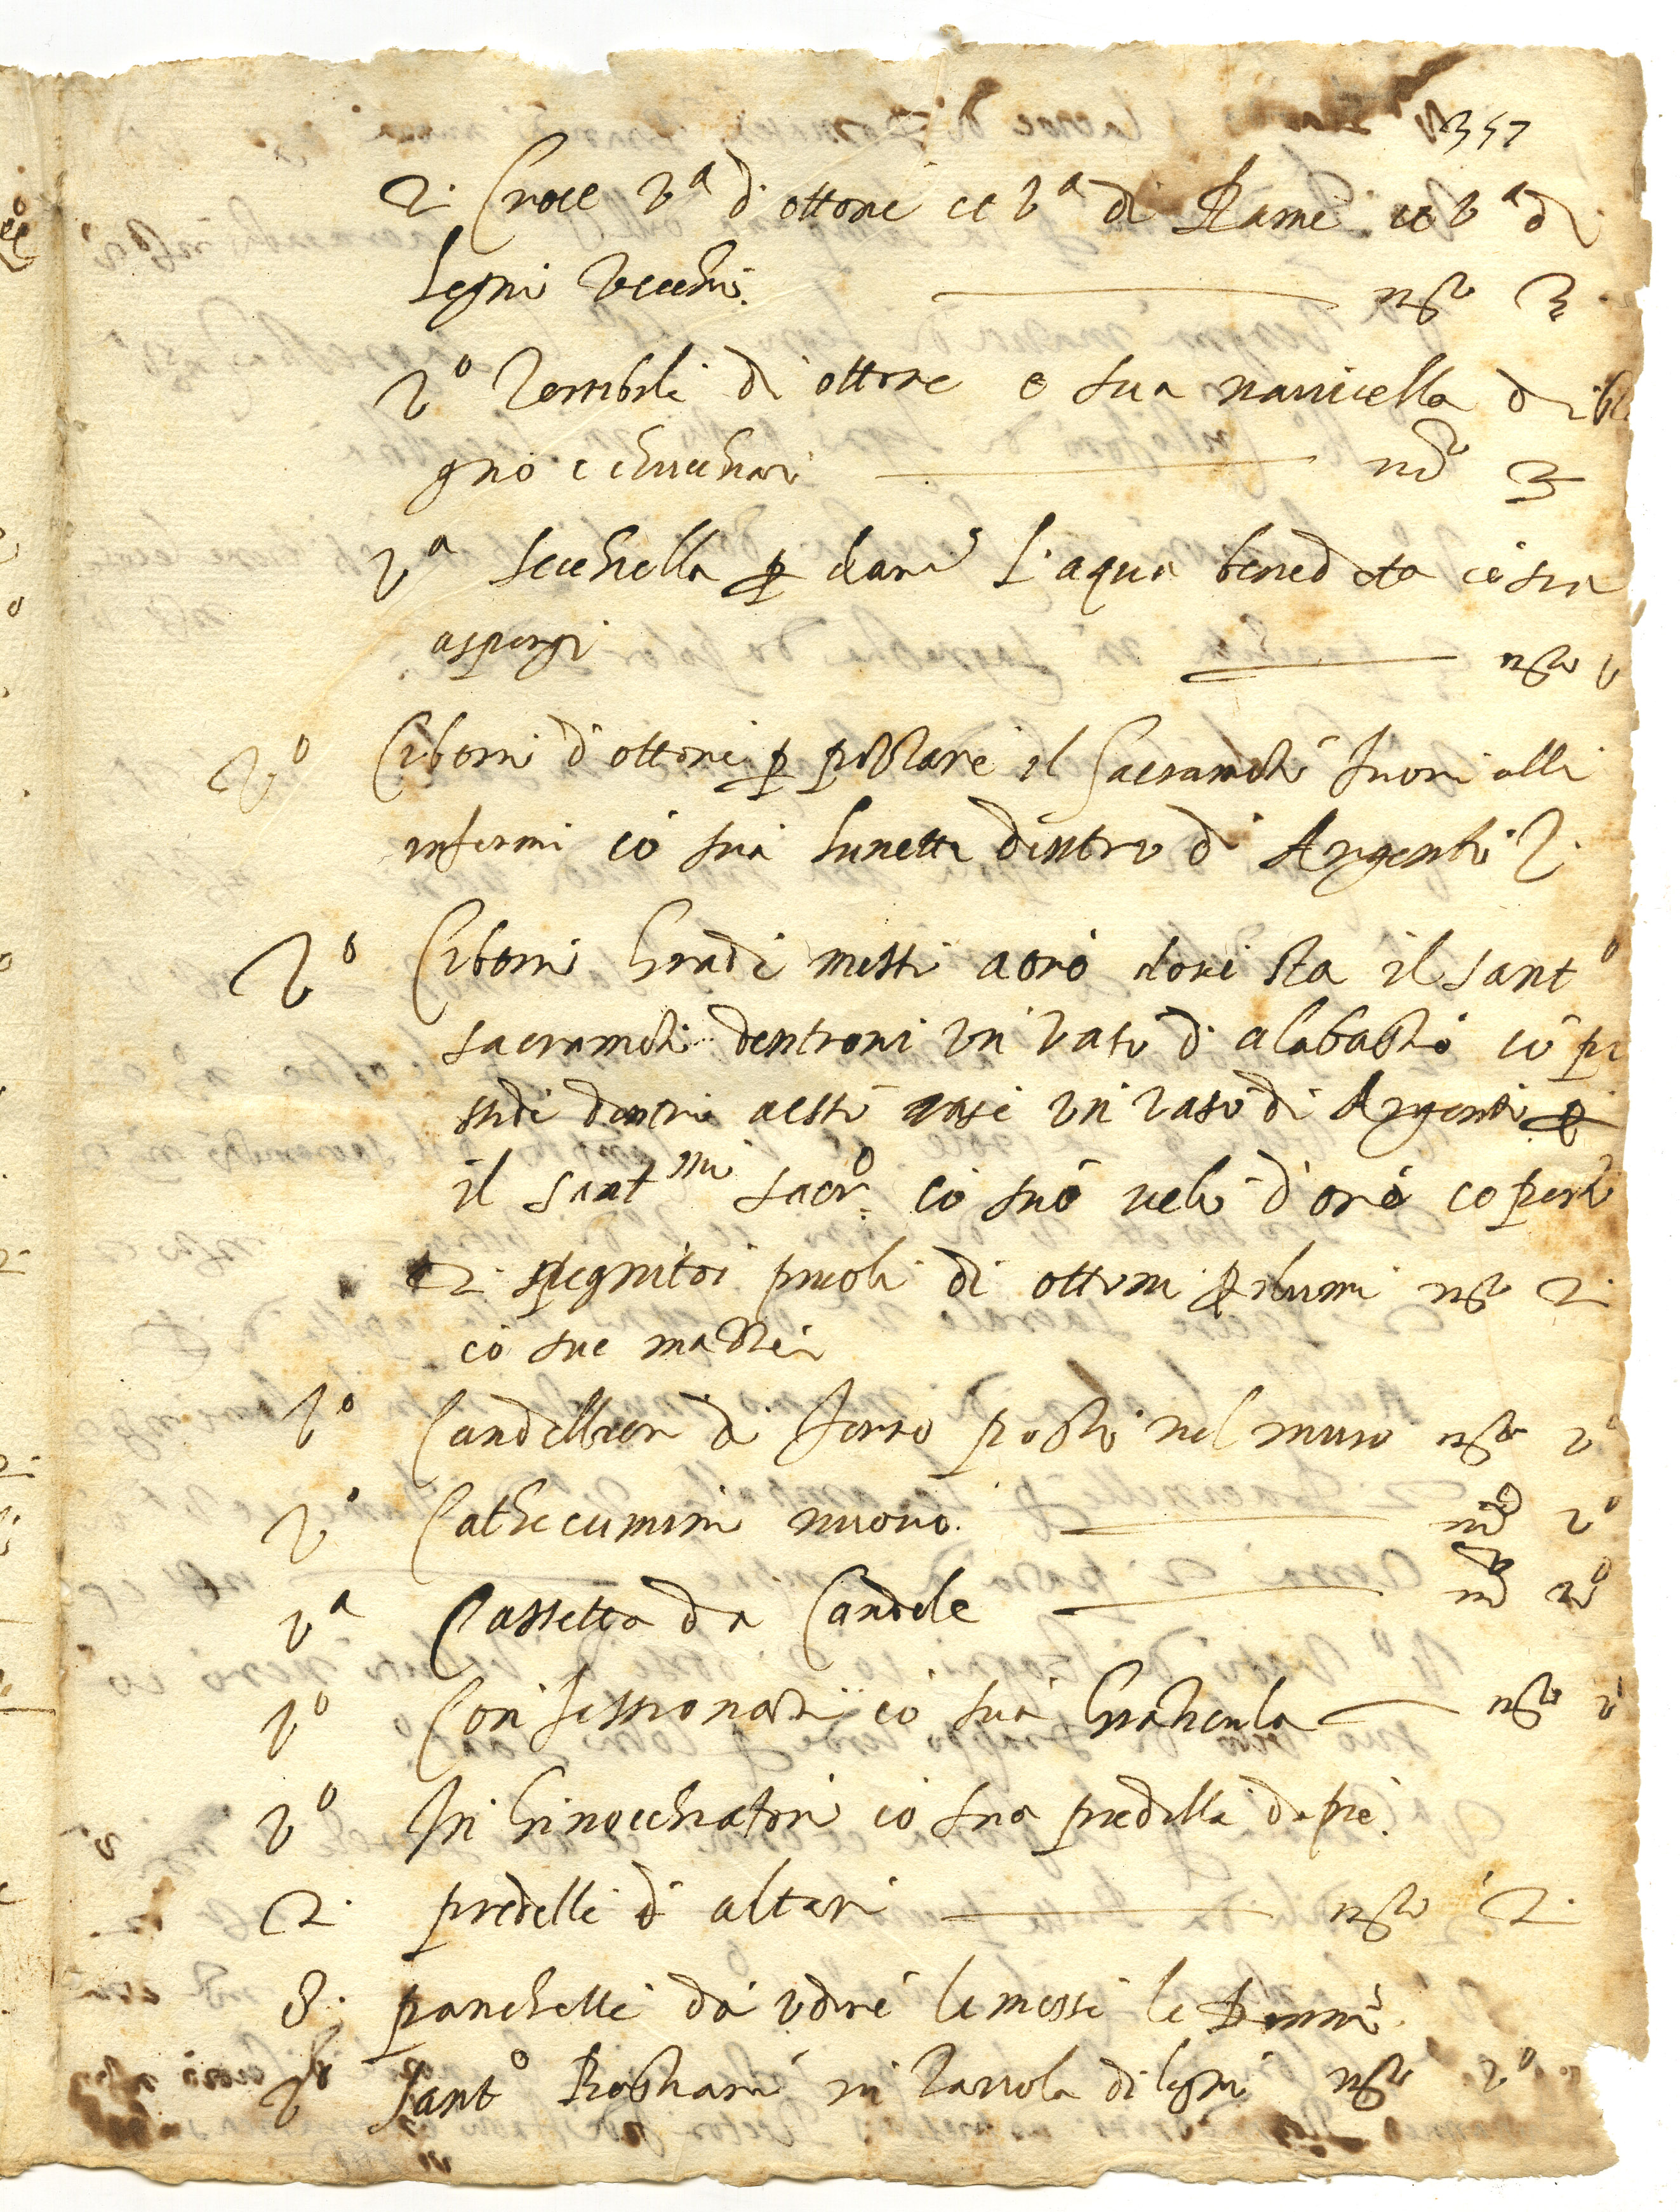 357
2. Croce vª d'ottone et vª di Rame et vª di
legni vecchi. n̄ro 3
vº Terribili di ottone e sua navicella di le
gno e chucchiari n̄ro 3
vª secchiella p dare l'aqua benedeta cō sua
aspergi n̄ro v
vº Ciborii d'ottone p portare il Sacramēto fuori alli
infermi cō sua lunetta dentro di Argento v
vº Ciborii Grādi messi a oro dove sta il santº
sacramēto dentrovi un vaso d'alabastro cō pi
side dentro un vaso di Argento p
il santmo sacrº. cō suo velo d'oro coperto
2. spegnitoi picoli di ottoni p ilumi n̄ro 2.
cō sue
vº Candellieri di ferro posto nel muro n̄ro vº
vº Cathecumini nuovo. n̄ro vº
vª Cassetta da Candele n̄ro vº
vº Confessionario cō sua Graticula n̄ro v
vº In Ginocchiatori cō sua predella da piè.
2. predelle d'altari n̄ro 2.
8. panchette da udire le messe le Donne.
vº santº in tavola di legni n̄ro vº